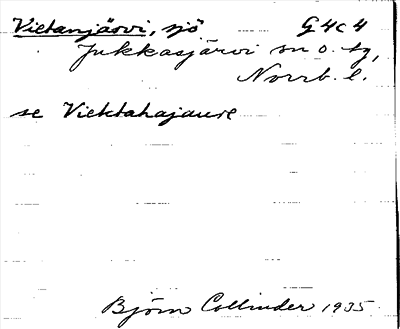 Vietanjärvi, sjö G4c4
Jukkasjärvi sn o. tg,
Norrb. l.
se Viektahajaure
Björn Collinder 1935